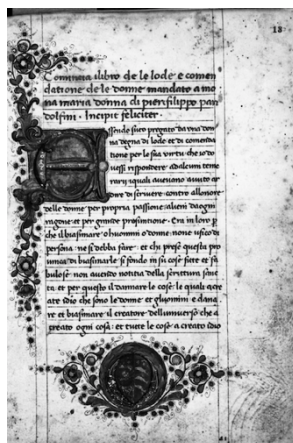 13
Comincia ilibro de le lode e comen
datione de le donne mandato a mo
na maria donna di pierfilippo pan
dolfini · Incipit feliciter ·
Essendo suto pregato da una don
na degna di lode et di comenda
tione per le sue virtu che io do
vessi rispondere ad alcuni teme
rarij iquali aveuono avuto ar
dire di scrivere contro allonore
delle donne per propria passione alieni da ogni
ragione et per grande prosuntione · Era in loro p
che il biasimare o huomini o donne none ufico di
persona ne si debba fare · et chi prese questa pro
vincia di biasimarle si fondo in su cose fitte et fa
bulose non avendo notitia della scrittura san
ta et per questo il dannare le cose le quali a cre
ate idio che sono le donne et gluomini e dana
re et biasimare il creatore dell universo che a
creato ogni cosa · et tutte le cose a creato idio